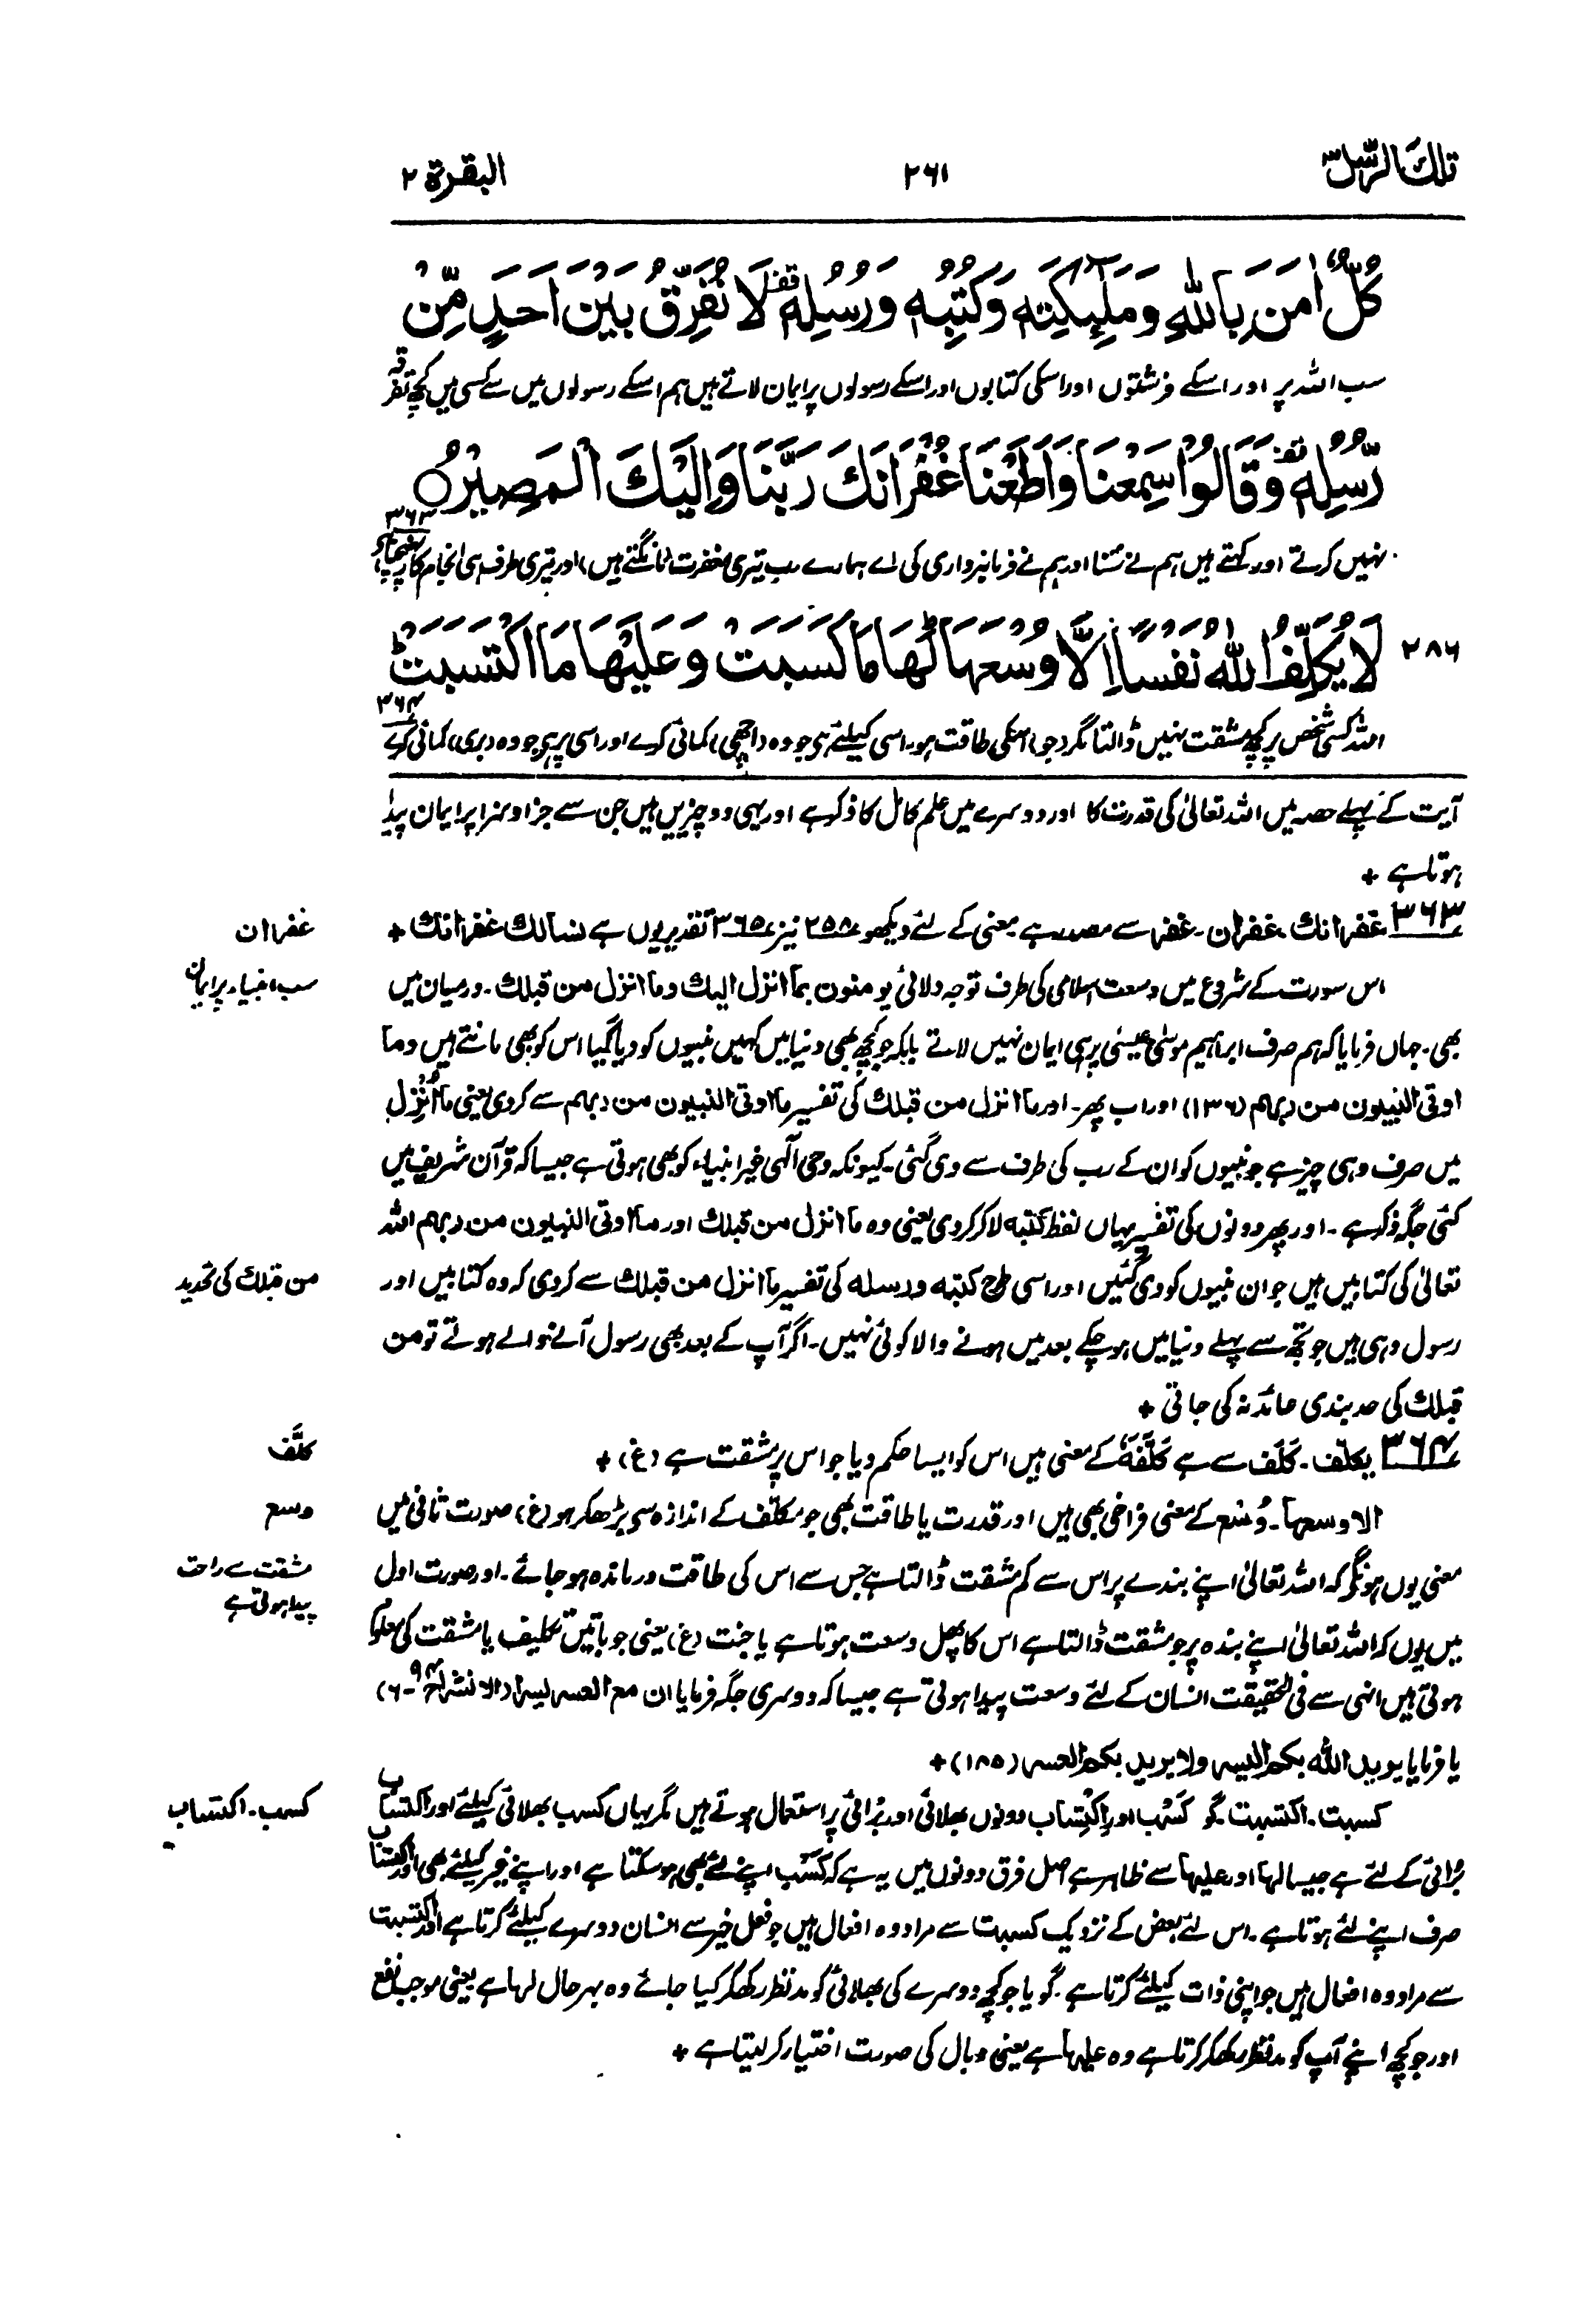 تلک الرسل ٣
٢٦١
البقرة ٢
كُلٌّ اٰمَنَ بِاللّٰهِ وَمَلٰٓئِكَتِهٖ وَكُتُبِهٖ وَرُسُلِهٖ ۟ لَا نُفَرِّقُ بَيْنَ اَحَدٍ مِّنْ
سب اللہ پر اور اسکے فرشتوں اور اسکی کتابوں اور اسکے رسولوں پر ایمان لاتے ہیں ہم اسکے رسولوں میں سے کسی میں کچھ تفرقہ
رُّسُلِهٖ ۟ وَقَالُوْا سَمِعْنَا وَاَطَعْنَا غُفْرَانَكَ رَبَّنَا وَاِلَيْكَ الْمَصِيْرُ ○
نہیں کرتے اور کہتے ہیں ہم نے سُنا اور ہم نے فرمانبرداری کی اے ہمارے رب تیری مغفرت (مانگتے ہیں) اور تیری طرف ہی انجام کار پہنچنا ہے ٣٦٣
٢٨٦ لَا يُكَلِّفُ اللّٰهُ نَفْسًا اِلَّا وُسْعَهَا ؕ لَهَا مَا كَسَبَتْ وَعَلَيْهَا مَا اكْتَسَبَتْ ؕ
اللہ کسی شخص پر کچھ مشقت نہیں ڈالتا مگر (جو) اسکی طاقت ہو۔ اسی کیلئے ہی جو وہ (اچھی) کمائی کرے اور اسی پر ہی جو وہ (بری) کمائی کرے ٣٦٤
آیت کے پہلے حصہ میں اللہ تعالیٰ کی قدرت کا اور دوسرے میں علم کامل کا ذکر ہے اور یہی دو چیزیں ہیں جن سے جزا و سزا پر ایمان پیدا
ہوتا ہے +
٣٦٣ غفرانك۔ غفران۔ غفر سے مصدر ہے معنی کے لئے دیکھو ٢٥٨ نیز ٣٦٥ تقدیر یوں ہے نسالك غفرانك +
غفران
اس سورت کے شروع میں وسعت اسلامی کی طرف توجہ دلائی یومنون بما انزل الیك وما انزل من قبلك۔ درمیان میں
سب انبیاء پر ایمان
بھی۔ جہاں فرمایا کہ ہم صرف ابراہیم موسیٰ عیسیٰ پر ہی ایمان نہیں لاتے بلکہ جو کچھ بھی دنیا میں کہیں نبیوں کو دیا گیا اس کو بھی مانتے ہیں وما
اوتی النبیون من ربهم (١٣٦) اور اب پھر۔ اور ما انزل من قبلك کی تفسیر ما اوتی النبیون من ربهم سے کردی یعنی ما اُنزل
میں صرف وہی چیز ہے جو نبیوں کو ان کے رب کی طرف سے دی گئی۔ کیونکہ وحی الٰہی غیر انبیاء کو بھی ہوتی ہے جیسا کہ قرآن شریف میں
کئی جگہ ذکر ہے۔ اور پھر دونوں کی تفسیر یہاں لفظ کتبه لا کر کردی یعنی وہ ما انزل من قبلك اور ما اوتی النبیون من ربهم اللہ
تعالیٰ کی کتابیں ہیں جو ان نبیوں کو دی گئیں اور اسی طرح کتبه ورسله کی تفسیر ما انزل من قبلك سے کردی کہ وہ کتابیں اور
من قبلك کی تحدید
رسول وہی ہیں جو تجھ سے پہلے دنیا میں ہو چکے بعد میں ہونے والا کوئی نہیں۔ اگر آپ کے بعد بھی رسول آنے والے ہوتے تو من
قبلك کی حد بندی عائد نہ کی جاتی +
٣٦٤ یکلّف۔ کَلَف سے ہے کَلَّفَهٗ کے معنی ہیں اس کو ایسا حکم دیا جو اس پر مشقت ہے (غ) +
کلَّف
الا وسعها۔ وُسع کے معنی فراخی بھی ہیں اور قدرت یا طاقت بھی جو مکلّف کے اندازہ سے بڑھکر ہو (غ) صورت ثانی میں
وسع
معنی یوں ہونگے کہ اللہ تعالیٰ اپنے بندے پر اس سے کم مشقت ڈالتا ہے جس سے اس کی طاقت درماندہ ہو جائے۔ اور صورت اول
مشقت سے راحت
پیدا ہوتی ہے
میں یوں کہ اللہ تعالیٰ اپنے بندہ پر جو مشقت ڈالتا ہے اس کا پھل وسعت ہوتا ہے یا جنت (غ) یعنی جو باتیں تکلیف یا مشقت کی معلوم
ہوتی ہیں انہی سے فی الحقیقت انسان کے لئے وسعت پیدا ہوتی ہے جیسا کہ دوسری جگہ فرمایا ان مع العسر یسرا (الانشراح ٩٤-٦)
یا فرمایا یرید الله بکم الیسر ولا یرید بکم العسر (١٨٥) +
کسبت۔ اکتسبت۔ گو کَسْب اور اِکْتِساب دونوں بھلائی اور بُرائی پر استعمال ہوتے ہیں مگر یہاں کسب بھلائی کیلئے اور اکتساب
کسب۔ اکتساب
بُرائی کے لئے ہے جیسا لها اور علیها سے ظاہر ہے اصل فرق دونوں میں یہ ہے کہ کَسْب اپنے لئے بھی ہو سکتا ہے اور اپنے غیر کیلئے بھی اور اکتساب
صرف اپنے لئے ہوتا ہے۔ اس لئے بعض کے نزدیک کسبت سے مراد وہ افعال ہیں جو فعل خیر سے انسان دوسرے کیلئے کرتا ہے اور اکتسبت
سے مراد وہ افعال ہیں جو اپنی ذات کیلئے کرتا ہے۔ گویا جو کچھ دوسرے کی بھلائی کو مدنظر رکھکر کیا جائے وہ بہر حال لها ہے یعنی موجب نفع
اور جو کچھ اپنے آپ کو مدنظر رکھکر کرتا ہے وہ علیها ہے یعنی وبال کی صورت اختیار کر لیتا ہے +